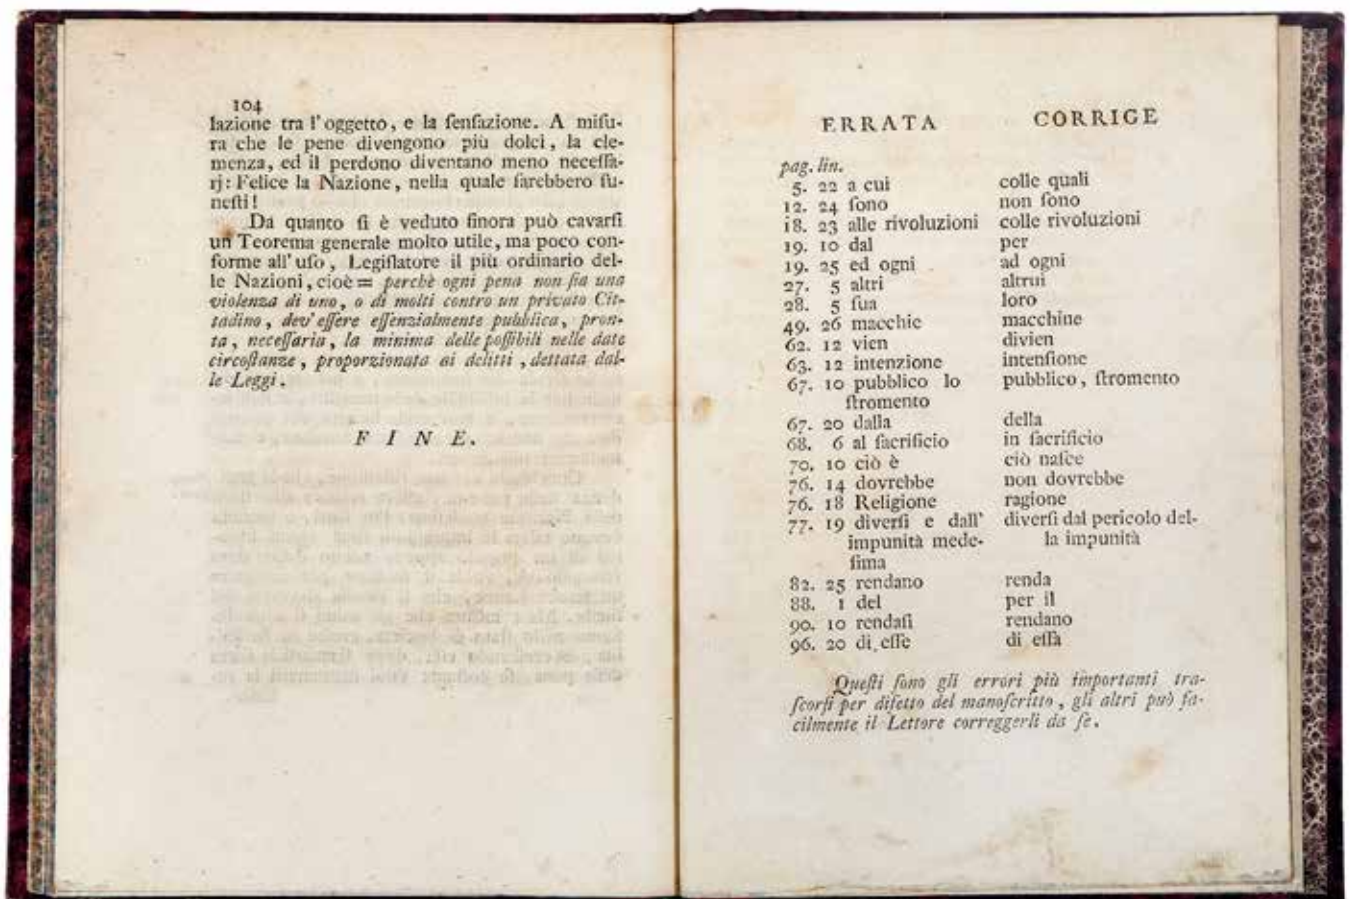 104
lazione tra l'oggetto, e la ſenſazione. A miſu-
ra che le pene divengono più dolci, la cle-
menza, ed il perdono diventano meno neceſſa-
rj: Felice la Nazione, nella quale ſarebbero fu-
neſti!
Da quanto ſi è veduto finora può cavarſi
un Teorema generale molto utile, ma poco con-
forme all'uſo, Legiſlatore il più ordinario del-
le Nazioni, cioè = perchè ogni pena non ſia una
violenza di uno, o di molti contro un privato Cit-
tadino, dev'eſſere eſſenzialmente pubblica, pron-
ta, neceſſaria, la minima delle poſſibili nelle date
circoſtanze, proporzionata ai delitti, dettata dal-
le Leggi.
F I N E.
ERRATA CORRIGE
pag. lin.
5. 22 a cui colle quali
12. 24 ſono non ſono
18. 23 alle rivoluzioni colle rivoluzioni
19. 10 dal per
19. 25 ed ogni ad ogni
27. 5 altri altrui
28. 5 ſua loro
49. 26 macchie macchine
62. 12 vien divien
63. 12 intenzione intenſione
67. 10 pubblico lo pubblico, ſtromento
ſtromento
67. 20 dalla della
68. 6 al ſacrificio in ſacrificio
70. 10 ciò è ciò naſce
76. 14 dovrebbe non dovrebbe
76. 18 Religione ragione
77. 19 diverſi e dall' diverſi dal pericolo del-
impunità mede- la impunità
ſima
82. 25 rendano renda
88. 1 del per il
90. 10 rendaſi rendano
96. 20 di eſſe di eſſa
Queſti ſono gli errori più importanti tra-
ſcorſi per difetto del manoſcritto, gli altri può fa-
cilmente il Lettore correggerli da ſè.